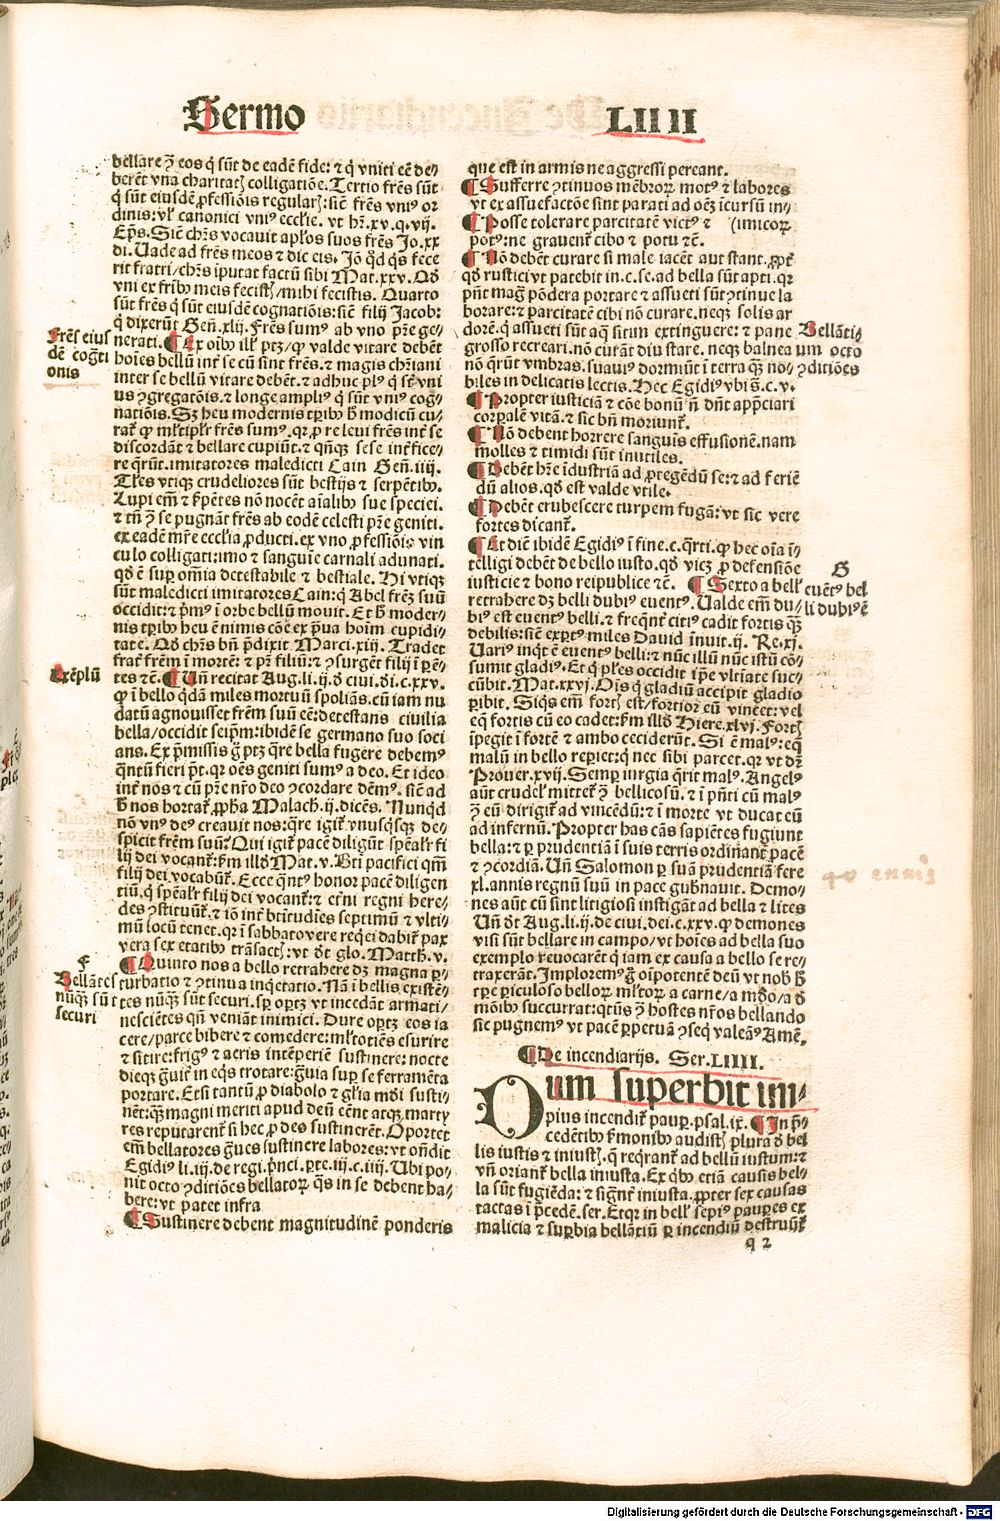 Sermo LIIII
bellare ꝯ̃ eos q̇ sũt de eadẽ fide: ⁊ q̇ vniti eẽ de⸗
berẽt vna charitatꝭ colligatiõe. Tertio frẽs sũt
q̇ sũt eiusdẽ ꝓfessiõis regularꝭ: sič frẽs vniꝰ or
dinis: vľ canonici vniꝰ eccľie. vt hr̃.xv.q.vij.
Ep̃s. Sič chr̃s vocauit apľos suos frẽs Jo.xx
di. Uade ad frẽs meos ⁊ dic eis. Jõ q̇d q̃s fece
rit fratri/chr̃s iputat factũ sibi Mat.xxv. Qď
vni ex frib⁹ meis fecistꝭ/mihi fecistis. Quarto
sũt frẽs q̇ sũt eiusdẽ cognatiõis: sič filij Jacob:
q̇ dixerũt Geñ.xlij. Frẽs sumꝰ ab vno pr̃e ge⸗
Frẽs eius
dẽ cog̃ti
onis
nerati. ¶ Ex oib⁹ illꝭ ptꝫ/ꝙ valde vitare debẽt
hoĩes bellũ intˀ se cũ sint frẽs. ⁊ magis chr̃iani
inter se bellũ vitare debẽt. ⁊ adhuc plꝰ q̇ st̃ vni
us ꝯgregatiõis. ⁊ longe ampliꝰ q̇ sũt vniꝰ cog⸗
natiõis. Sꝫ heu modernis tp̃ib⁹ ḣ modicũ cu⸗
ratˀ ꝙ mľtipľr frẽs sumꝰ. qꝛ ꝓ re leui frẽs intˀ se
discordãt ⁊ bellare cupiũt. ⁊ qñqꝫ sese intˀfice⸗
re q̃rũt. imitatores maledicti Cain Geñ.iiij.
Tľes vtiqꝫ crudeliores sũt bestijs ⁊ serpẽtib⁹.
Lupi em̃ ⁊ ẜpẽtes nõ nocẽt aĩalib⁹ sue speciei.
⁊ tñ ꝯ̃ se pugnãt frẽs ab eodẽ celesti pr̃e geniti.
ex eadẽ mr̃e eccľia ꝓducti. ex vno ꝓfessiõis vin
culo colligati: imo ⁊ sanguĩe carnali adunati.
qď ẽ suꝑ om̃ia detestabile ⁊ bestiale. Hi vtiqꝫ
sũt maledicti imitatores Cain: q̇ Abel frẽꝫ suũ
occidit: ⁊ pˀmꝰ ĩ orbe bellũ mouit. Et ḣ moder⸗
nis tp̃ib⁹ heu ẽ nimis cõe ex p̃ua hoĩm cupidi⸗
tate. Qď chr̃s bñ p̃dixit Marci.xiij. Tradet
fratˀ frẽm ĩ mortẽ: ⁊ pr̃ filiũ: ⁊ ꝯsurgẽt filij ĩ pẽ⸗
Exẽplũ
tes ⁊c̃. ¶ Uñ recitat Aug.li.ij.ď ciui.di.c.xxv.
ꝙ ĩ bello q̇dã miles mortuũ spoliãs. cũ iam nu
datũ agnouisset frẽm suũ eẽ: detestans ciuilia
bella/occidit seipm̃: ibidẽ se germano suo soci
ans. Ex p̃missis g̊ ptꝫ q̃re bella fugere debemꝰ
q̃ntũ fieri pˀt. qꝛ oẽs geniti sumꝰ a deo. Et ideo
intˀ nos ⁊ cũ pr̃e nr̃o deo ꝯcordare dẽmꝰ. sič ad
ḣ nos hortatˀ ꝓpha Malach.ij. dicẽs. Nunqď
nõ vnꝰ deꝰ creauit nos: q̃re igitˀ vnusq̇sqꝫ de⸗
spicit frẽm suũ? Qui igitˀ pacẽ diligũt sp̃ealˀr fi
lij dei vocantˀ: ẜm illď Mat.v. Bt̃i pacifici qm̃
filij dei vocabũtˀ. Ecce q̃ntꝰ honor pacẽ diligen
tiũ. q̇ sp̃ealˀr filij dei vocantˀ: ⁊ etˀni regni here⸗
des ꝯstituũtˀ. ⁊ iõ intˀ bt̃itudĩes septimũ ⁊ vlti⸗
mũ locũ tenet. qꝛ ĩ sabbato vere req̇ei dabitˀ pax
vera sex etatib⁹ trãsactꝭ: vt dˀt glo. Matth.v.
F
Bellãtes
nũqꝫ sũt
securi
¶ Quinto nos a bello retrahere dꝫ magna ꝑ⸗
turbatio ⁊ ꝯtinua inq̇etatio. Nã ĩ bellis existẽ⸗
tes nũqꝫ sũt securi. sꝑ oꝑtꝫ vt incedãt armati/
nesciẽtes qñ veniãt inimici. Dure oꝑtꝫ eos ia
cere/parce bibere ⁊ comedere: mľtotiẽs esurire
⁊ sitire: frigꝰ ⁊ aeris intẽperiẽ sustinere: nocte
dieqꝫ g̃uitˀ in eq̇s trotare: g̃uia suꝑ se ferramẽta
portare. Etsi tantũ ꝓ diabolo ⁊ gľia mũdi susti⸗
nẽt: qꝫ magni meriti apud deũ eẽnt atqꝫ marty
res reputarentˀ si hec ꝓ deo sustinerẽt. Oportet
em̃ bellatores g̃ues sustinere labores: vt oñdit
Egidiꝰ li.iij.de regi.pˀnci.ꝑte.iij.c.iiij. Ubi po⸗
nit octo ꝯditiões bellatoꝝ q̃s in se debent ha⸗
bere: vt patet infra
¶ Sustinere debent magnitudinẽ ponderis
que est in armis ne aggressi pereant.
¶ Sufferre ꝯtinuos mẽbroꝝ motꝰ ⁊ labores
vt ex assuefactiõe sint parati ad oẽꝫ ĩcursũ in⸗
¶ Posse tolerare parcitatẽ victꝰ ⁊ (imicoꝝ
potꝰ: ne grauentˀ cibo ⁊ potu ⁊c̃.
¶ Nõ debẽt curare si male iacẽt aut stant. ꝓptˀ
qď rustici vt patebit in.c.se.ad bella sũt apti. qꝛ
pñt mag̃ põdera portare ⁊ assueti sũt ꝯtinue la
borare: ⁊ parcitatẽ cibi nõ curare. neqꝫ solis ar
dorẽ. q̇ assueti sũt aq̃ sitim extinguere: ⁊ pane
Bellãti⸗
um octo
ꝯditiões
grosso recreari. nõ curãt diu stare. neqꝫ balnea
nõ q̃rũt vmbras. suauiꝰ dormiũt ĩ terra qꝫ no⸗
biles in delicatis lectis. Hec Egidiꝰ vbi s̃.c.v.
¶ Propter iusticiã ⁊ cõe bonũ ñ dñt app̃ciari
corꝑalẽ vitã. ⁊ sic bñ moriuntˀ.
¶ Nõ debent horrere sanguis effusionẽ. nam
molles ⁊ timidi sũt inutiles.
¶ Debẽt hr̃e ĩdustriã ad ꝓtegẽdũ se: ⁊ ad feriẽ
dũ alios. qď est valde vtile.
¶ Debẽt erubescere turpem fugã: vt sic vere
fortes dicantˀ.
¶ Et dič ibidẽ Egidiꝰ ĩ fine.c.q̃rti. ꝙ hec oĩa ĩ⸗
telligi debẽt de bello iusto. qď vicꝫ ꝓ defensiõe
G
euẽtꝰ bel
li dubiꝰ ẽ
iusticie ⁊ bono reipublice ⁊c̃. ¶ Sexto a bellˀ
retrahere dꝫ belli dubiꝰ euentꝰ. Ualde em̃ du⸗
biꝰ est euentꝰ belli: ⁊ freq̃ntˀ citiꝰ cadit fortis qꝫ
debilis: sič exꝑtꝰ miles Dauid ĩnuit.ij. Re.xj.
Uariꝰ inq̇t ẽ euentꝰ belli: ⁊ nũc illũ nũc istũ cõ⸗
sumit gladiꝰ. Et q̇ pľes occidit ip̃e vltĩate suc⸗
cũbit. Mat.xxvj. Oĩs q̇ gladiũ accipit gladio
ꝑibit. Siq̇s em̃ fortꝭ est/fortior eũ vincet: vel
eq̃ fortis cũ eo cadet: ẜm illď Hiere.xlvj. Fortꝭ
ĩpegit ĩ fortẽ ⁊ ambo ceciderũt. Si ẽ malꝰ: eq̃
malũ in bello reꝑiet: q̇ nec sibi parcet. qꝛ vt dꝛ
Prouer.xvij. Semꝑ iurgia q̃rit malꝰ. Angelꝰ
aũt crudelˀ mittetˀ ꝯ̃ bellicosũ. ⁊ ĩ pñti cũ malꝰ
ꝯ̃ eũ dirigitˀ ad vincẽdũ: ⁊ ĩ morte vt ducat eũ
ad infernũ. Propter has cãs sapiẽtes fugiunt
bella: ⁊ ꝑ prudentiã ĩ suis terris ordinantˀ pacẽ
⁊ ꝯcordiã. Uñ Salomon ꝑ suã prudentiã fere
xl. annis regnũ suũ in pace gubˀnauit. Demo⸗
40 annis
nes aũt cũ sint litigiosi instigãt ad bella ⁊ lites
Uñ dˀt Aug.li.ij.de ciui.dei.c.xxv. ꝙ demones
visi sũt bellare in campo/vt hoĩes ad bella suo
exemplo reuocarẽt q̇ iam ex causa a bello se re⸗
traxerãt. Jmploremꝰ g̊ oĩpotentẽ deũ vt nob̃ ḣ
tꝑe ꝑiculoso belloꝝ mľtoꝝ a carne/a mũdo/a de
mõib⁹ succurrat: qtũs ꝯ̃ hostes nr̃os bellando
sic pugnemꝰ vt pacẽ ꝑpetuã ꝯseq̇ valeaꝰ Amẽ.
¶ De incendiarijs. Ser.LIIII.
Dum superbit im⸗
pius incenditˀ pauꝑ. psal.ix. ¶ In p̃⸗
cedẽtib⁹ ẜmonib⁹ audistꝭ plura ď bel
lis iustis ⁊ iniustꝭ. q̇ req̇rantˀ ad bellũ iustum: ⁊
vñ oriantˀ bella iniusta. Ex q̇b⁹ etiã causis bel⸗
la sũt fugiẽda: ⁊ signtˀ iniusta. ꝓpter sex causas
tactas ĩ p̃cedẽ. ser. Etqꝛ in bellˀ sepiꝰ pauꝑes ex
malicia ⁊ suꝑbia bellãtiũ ꝑ incendiũ destruũtˀ
q 2
Digitalisierung gefördert durch die Deutsche Forschungsgemeinschaft - DFG